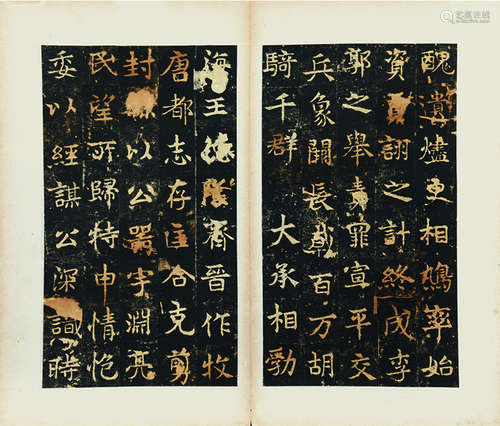 醜遺燼更相鴟率始
資詡之計終成李
郭之舉責罪宣平交
兵象鬪長戟百万胡
騎千群 大承相勃
海王齊晉作牧
唐都志存匡合克剪
封以公器宇淵亮
民望所歸特申情
委以經謀公深識時